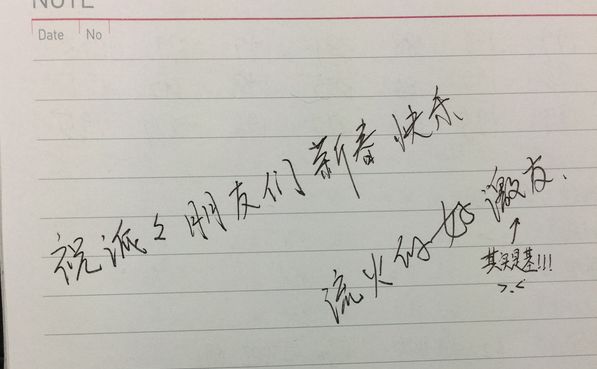 NOTE
Date No
祝派々朋友们新春快乐
流火的好激友.
↑
其实是基!!!
>.<